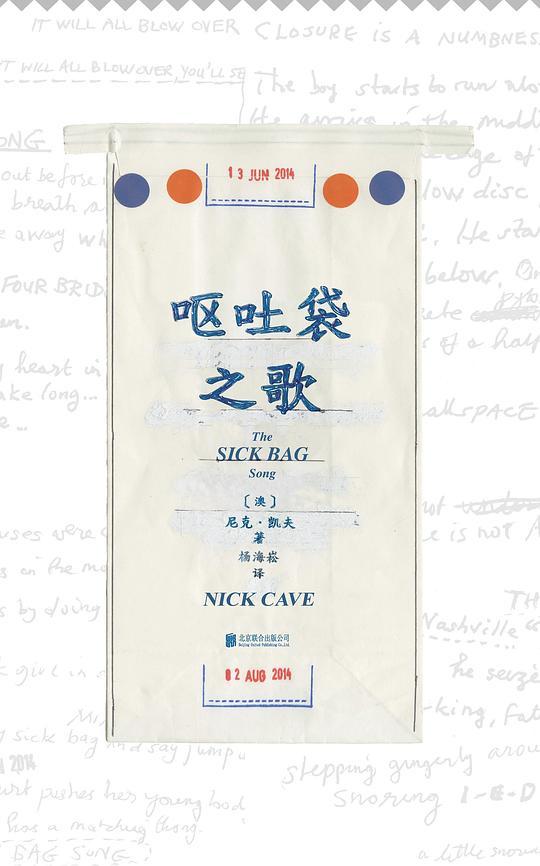 IT WILL ALL BLOW OVER
CLOSURE IS A NUMBNESS
IT WILL ALL BLOW OVER, YOU'LL SE
The boy starts to run alo
SONG
He
in the midd
out before
edge of
breath, a
low disc
e away wh
He sta
FOUR BRID
below. On
en.
of a half
y heart in
ake long...
allSPACE
13 JUN 2014
呕吐袋
之歌
The
SICK BAG
Song
〔澳〕
尼克·凯夫
著
杨海崧
译
NICK CAVE
北京联合出版公司
Beijing United Publishing Co.,Ltd.
02 AUG 2014
ot
uses were
e is not A
s on the mo
TH
s by doing
Nashville
he seize
k girl in s
-king, Fat
y sick bag and say jump
2014
stepping gingerly arou
urt pushes her young bod
Snoring 1-E-D
has a matching thong.
BAG SONG
a little snow